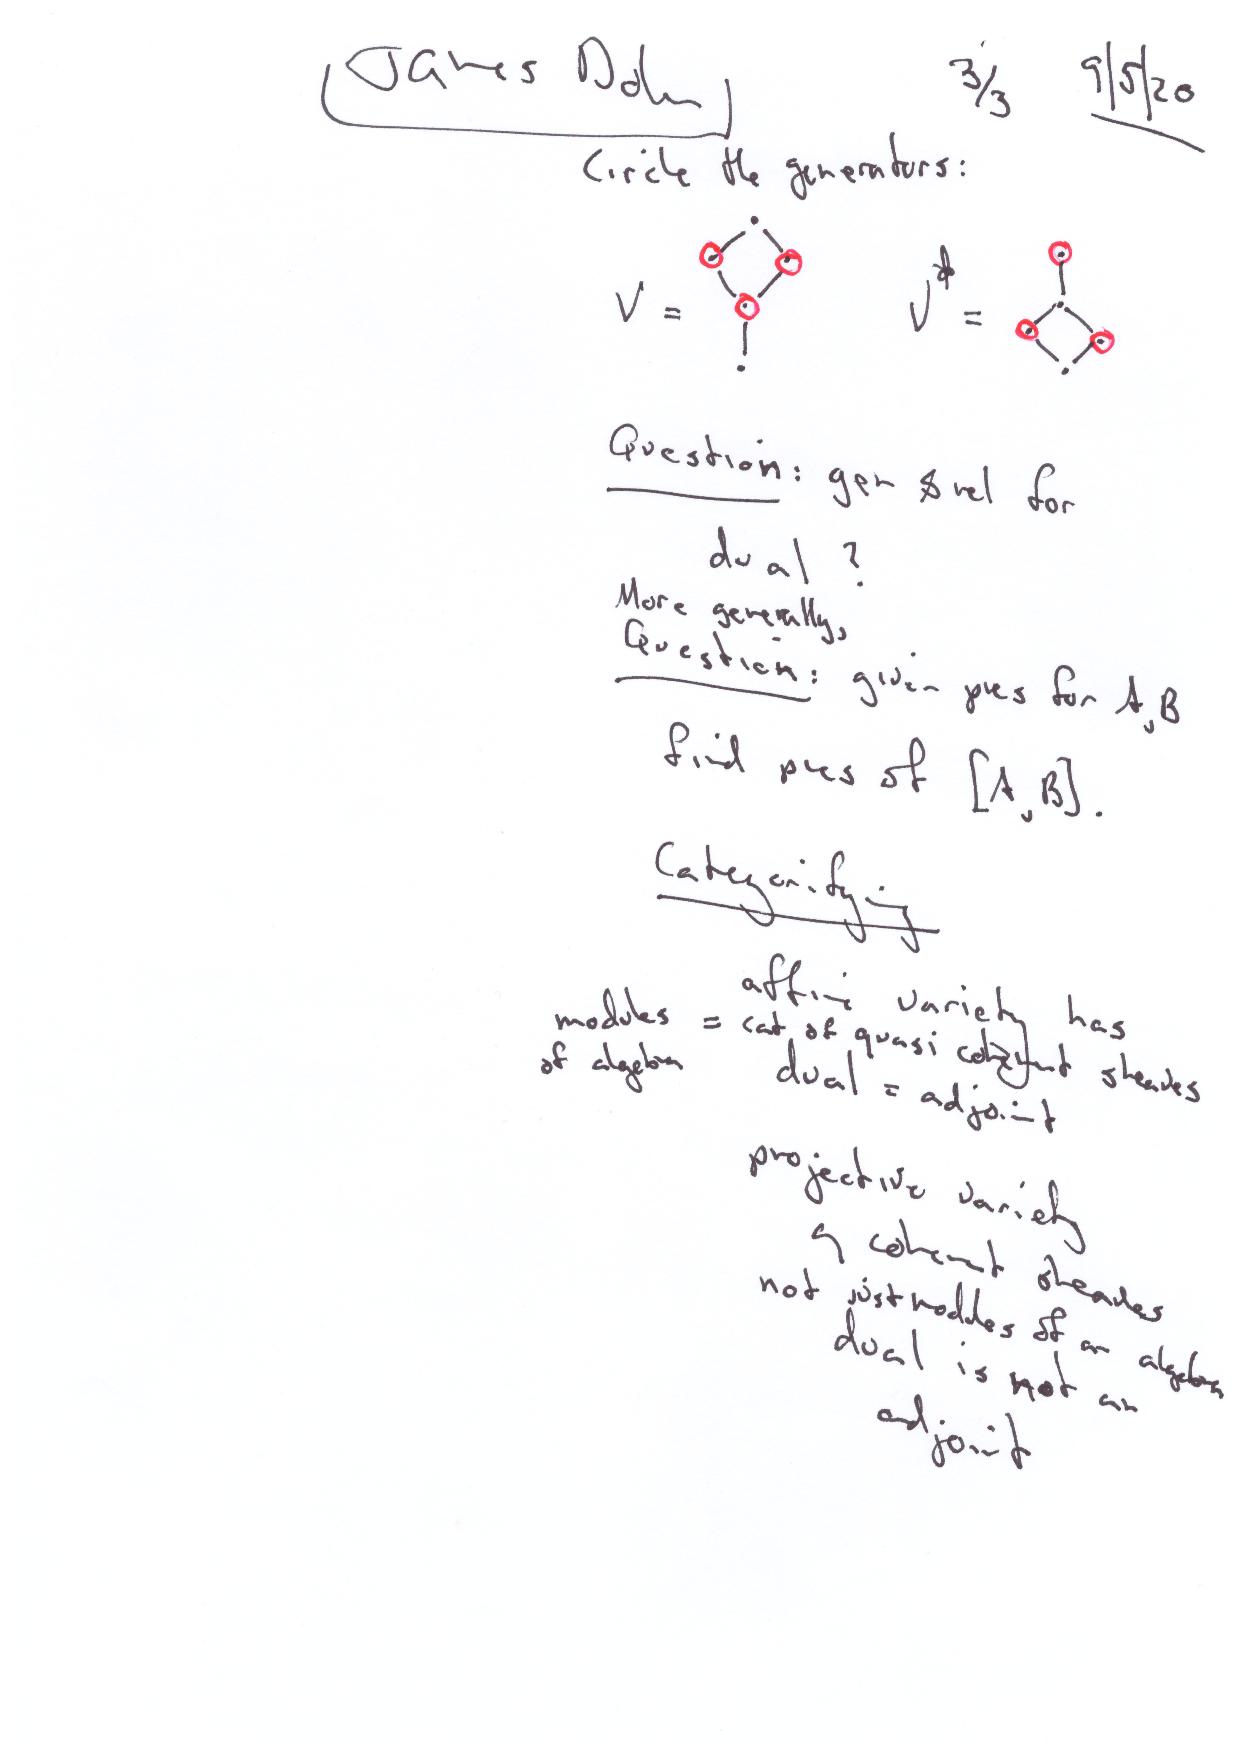 James Dolan 3/3 9/5/20
Circle the generators:
V = V* =
Question: gen & rel for
dual?
More generally,
Question: given pres for A, B
find pres of [A, B].
Categorifying
affine variety has
modules = cat of quasi coherent sheaves
of algebra dual = adjoint
projective variety
q coherent sheaves
not just modules of an algebra
dual is not an
adjoint